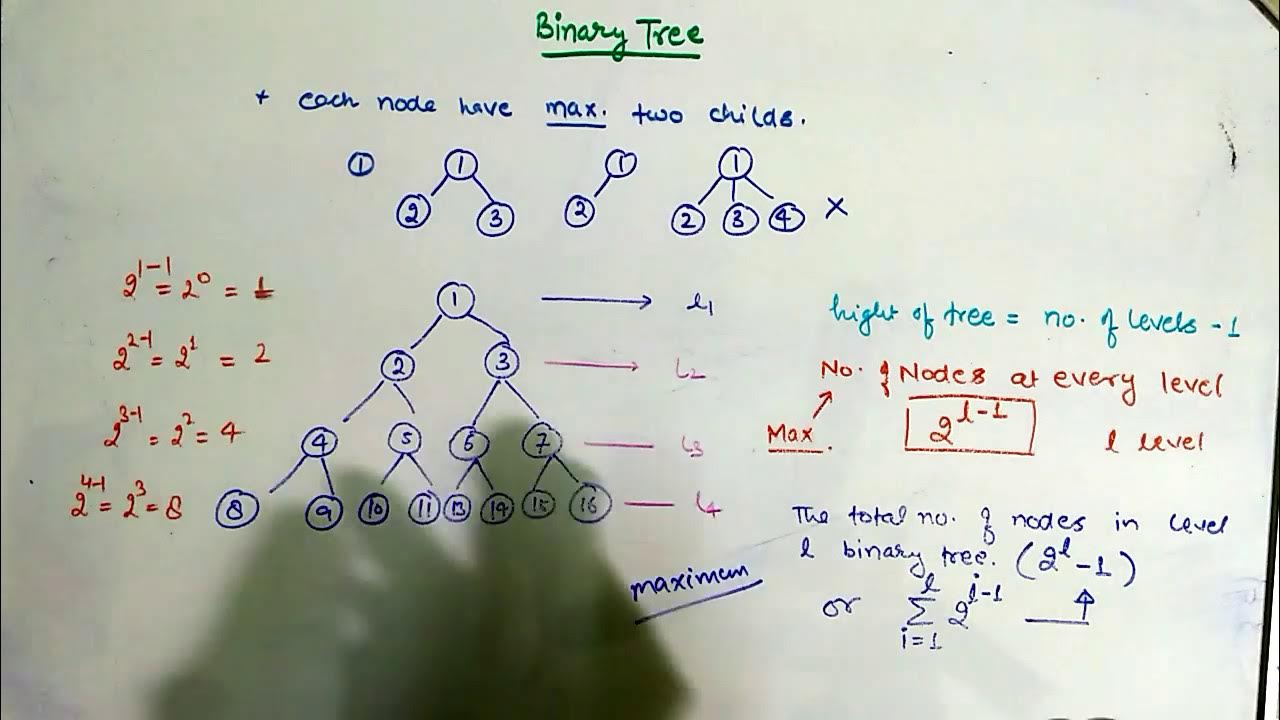 Binary Tree
+ each node have max. two childs.
① ① ① ①
② ③ ② ② ③ ④ ×
2^1-1 = 2^0 = 1 ① l1
hight of tree = no. of levels - 1
2^2-1 = 2^1 = 2 ② ③ L2
No. of Nodes at every level
Max. 2^l-1 l level
2^3-1 = 2^2 = 4 ④ ⑤ ⑥ ⑦ L3
2^4-1 = 2^3 = 8 ⑧ ⑨ ⑩ ⑪ ⑬ ⑭ ⑮ ⑯ L4
The total no. of nodes in level
l binary tree. (2^l - 1)
maximum
or l Σ i=1 2^i-1